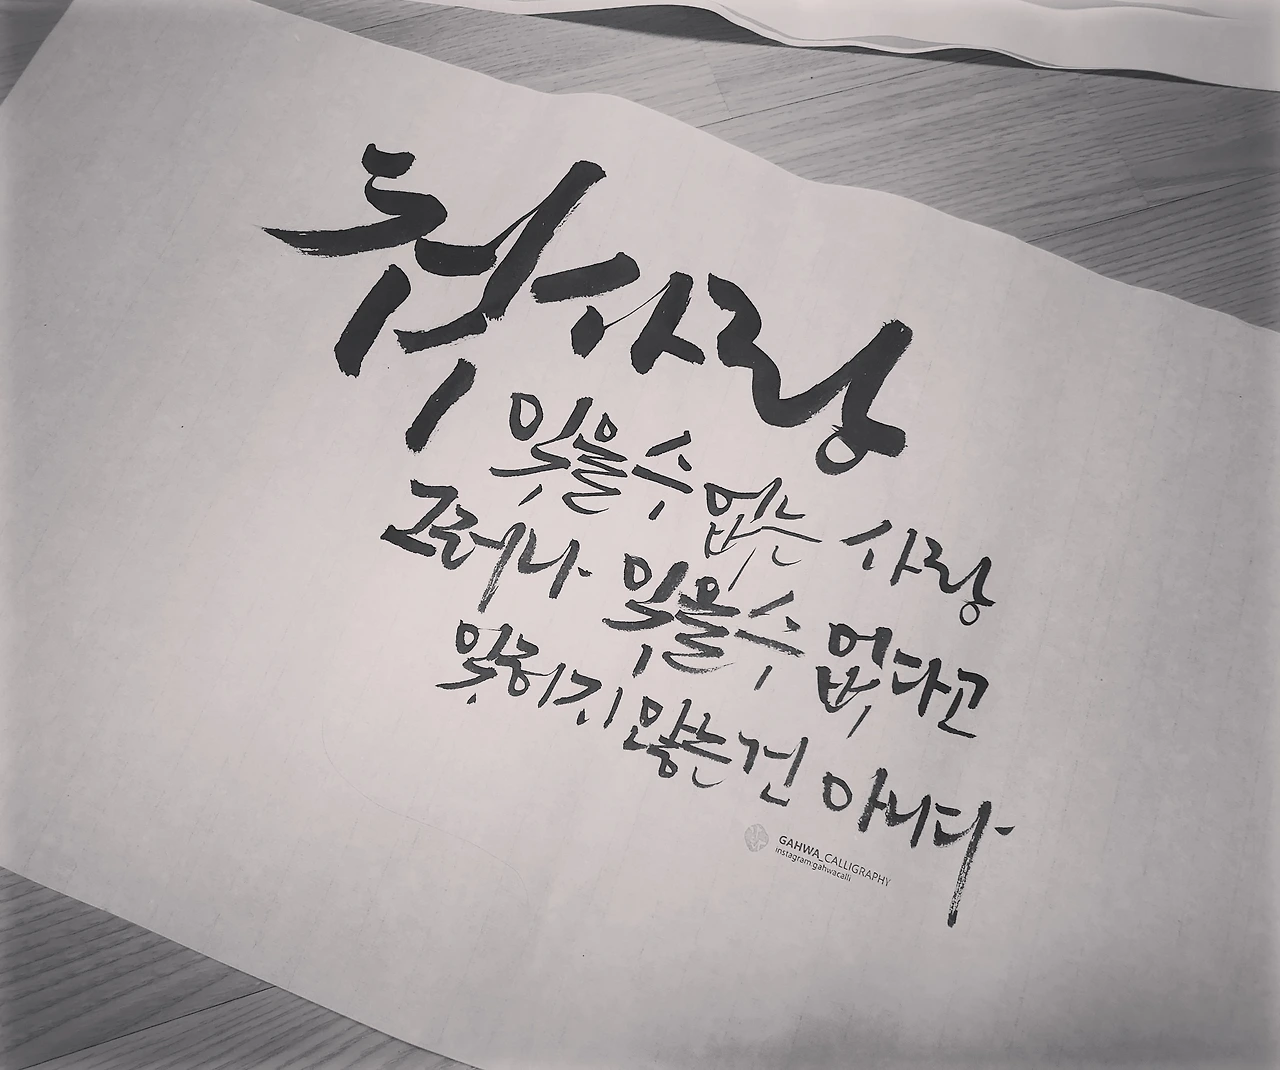 첫사랑
잊을수 없는 사랑
그러나 잊을수 없다고
잊히지 않는건 아니다
GAHWA_CALLIGRAPHY
instagram:gahwacalli